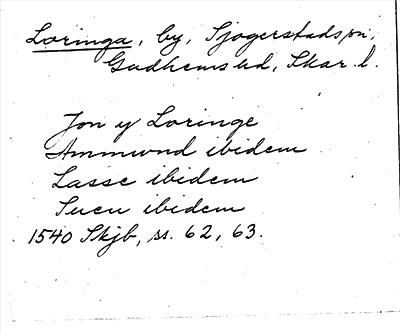 Loringa, by, Sjogerstads sn,
Gudhems hd, Skar. l.
Jon y Loringe
Ammwnd ibidem
Lasse ibidem
Suen ibidem
1540 Skjb, ss. 62, 63.